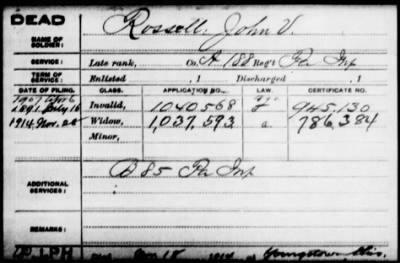 DEAD
NAME OF SOLDIER: Rossell, John V.
SERVICE: Late rank, Co. A 188 Reg't Pa Inf
TERM OF SERVICE: Enlisted , 1 Discharged , 1
DATE OF FILING. CLASS. APPLICATION NO. LAW. CERTIFICATE NO.
1891 July 16 Invalid, 1040568 945,130
1914 Nov. 28 Widow, 1,037,593 a. 786,384
Minor,
ADDITIONAL SERVICES: B 85 Pa Inf
REMARKS:
Nov 15 1914 at Youngstown